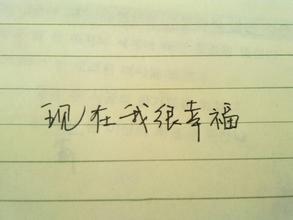 现在我很幸福